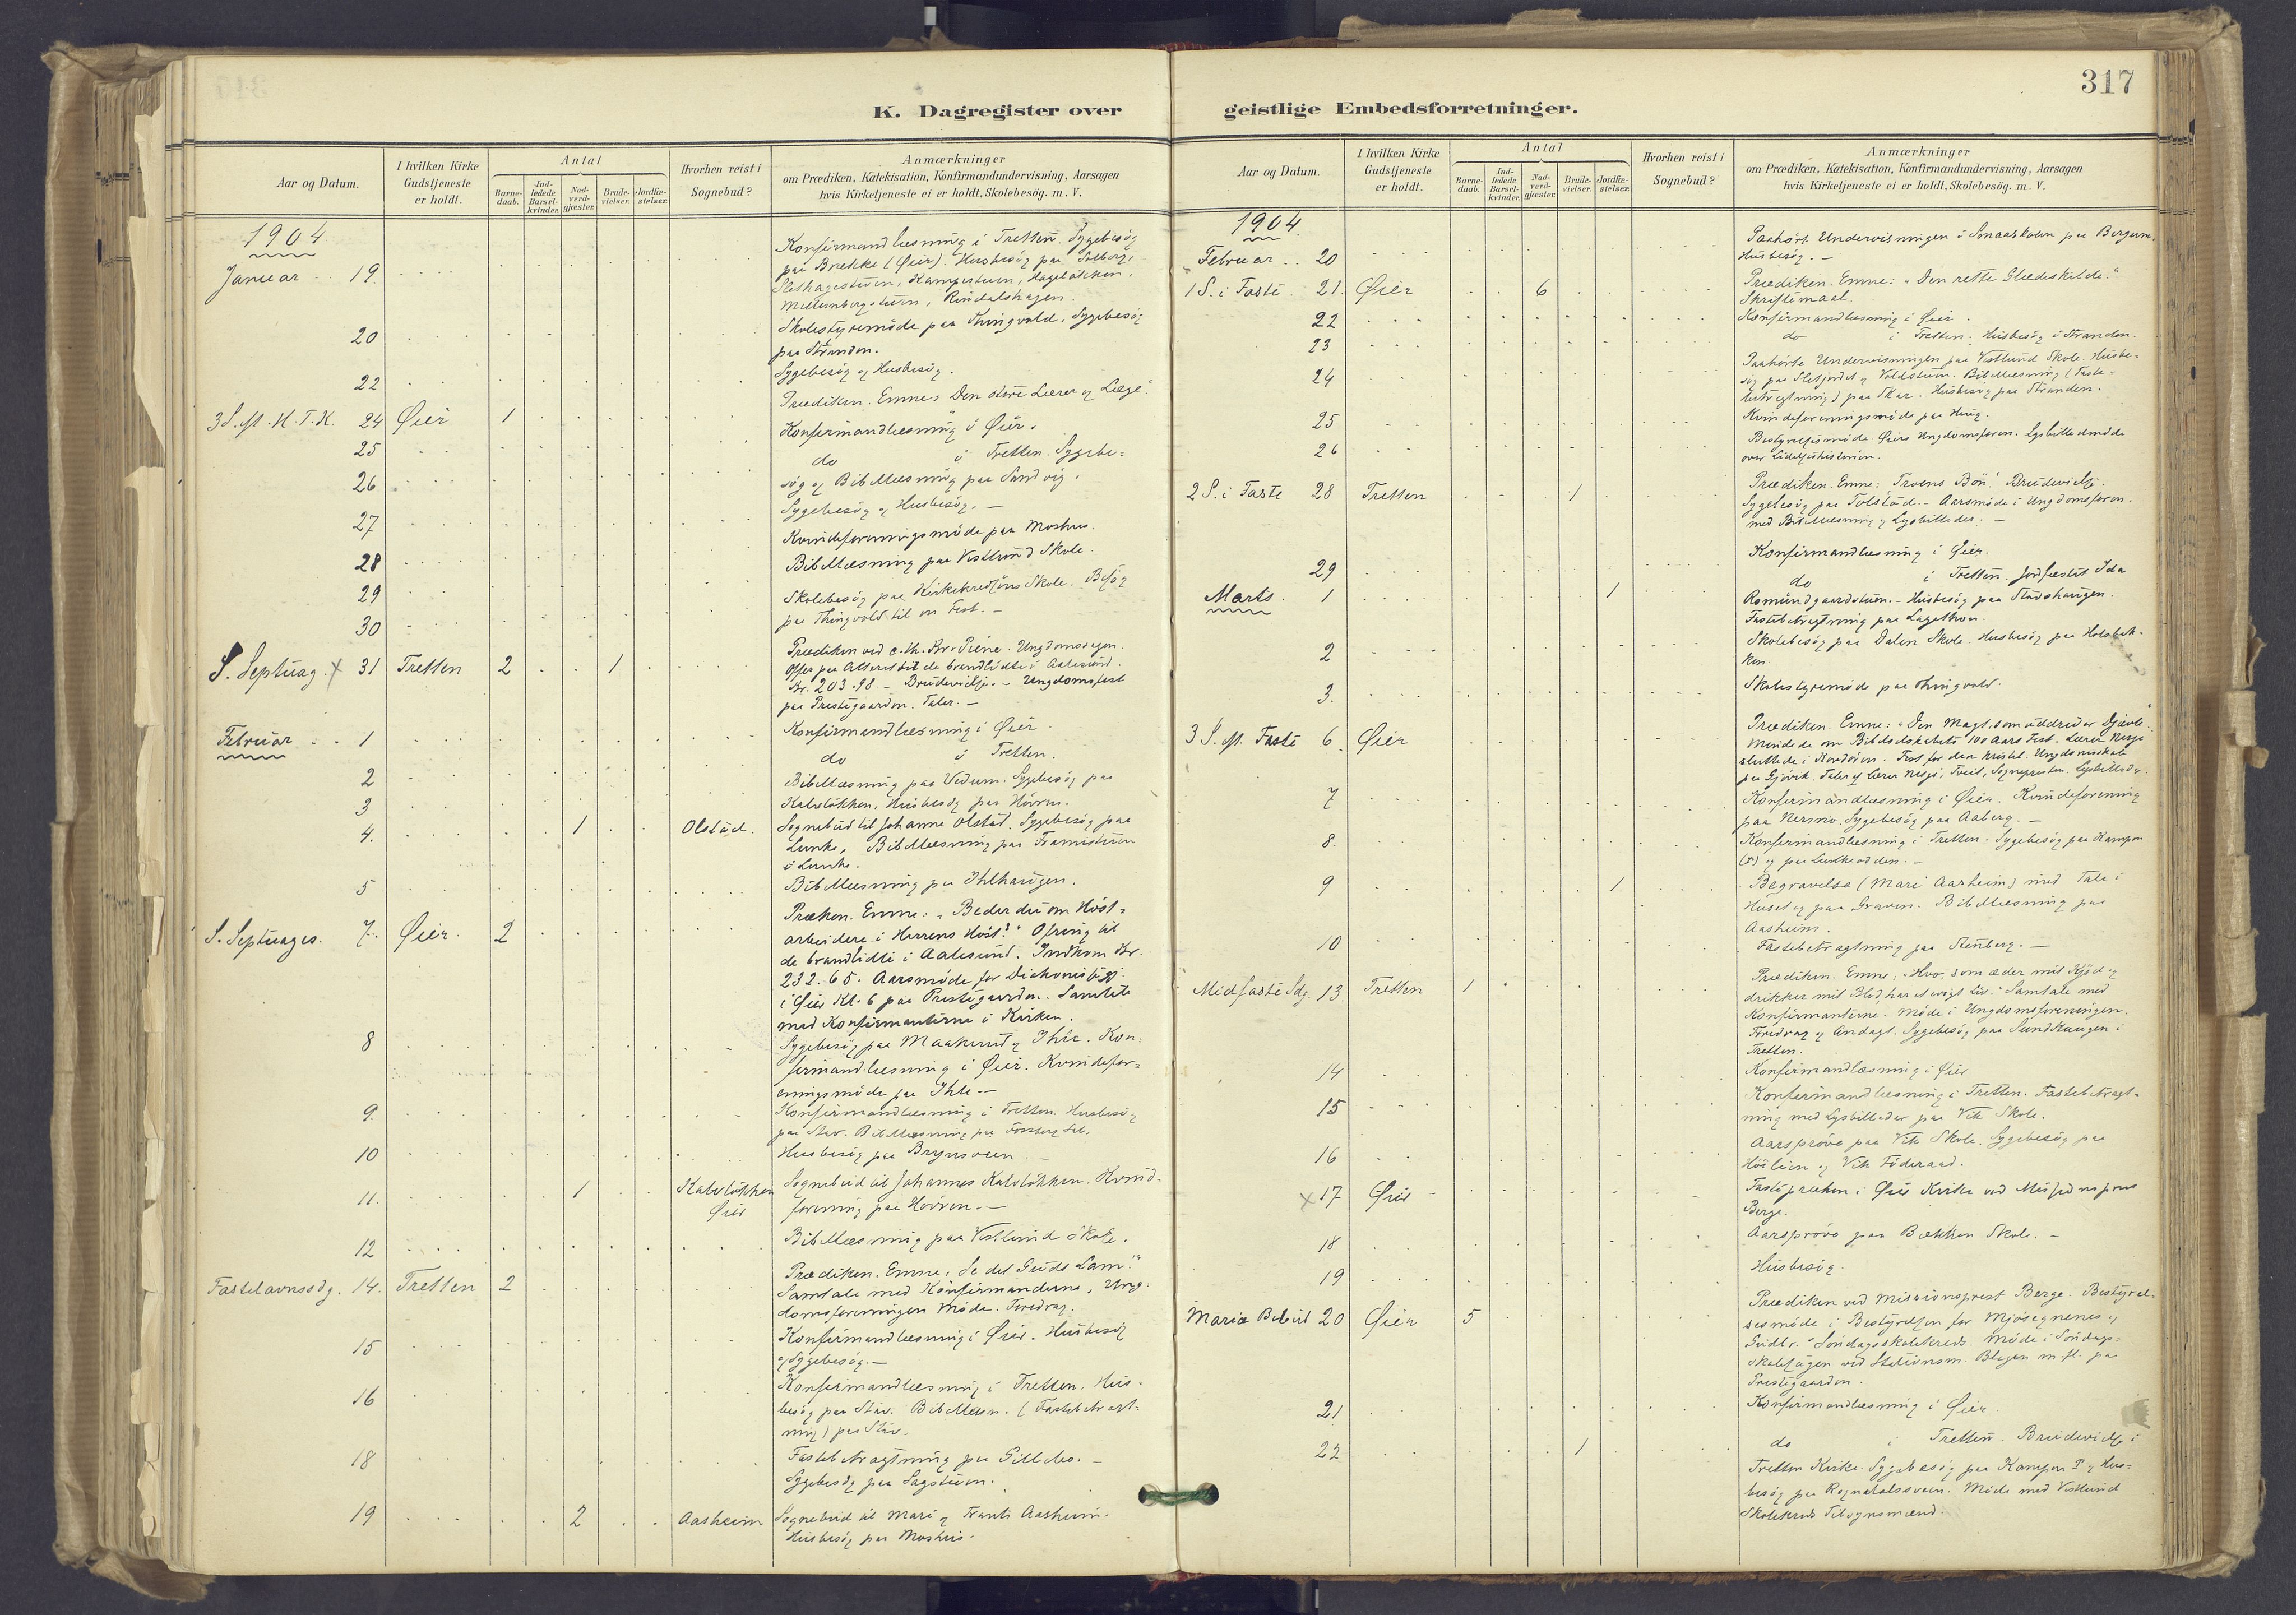 317
K. Dagregister over geistlige Embedsforretninger.
Aar og Datum.
I hvilken Kirke Gudstjeneste er holdt.
Antal
Barne-daab.
Ind-ledede Barsel-kvinder.
Nad-verd-gjæster.
Brude-vielser.
Jordfæ-stelser.
Hvorhen reist i Sognebud?
Anmærkninger
om Prædiken, Katekisation, Konfirmandundervisning, Aarsagen
hvis Kirketjeneste ei er holdt, Skolebesög. m. V.
1904
Januar 19.
Konfirmandlæsning i Tretten. Sygebesög
paa Brekke (Øier). Husbesög paa Solberg,
Rindalshagen.
20
Skolestyremöde paa Thingvold. Sygebesög
paa Stranden.
22
Sygebesög og Husbesög.
3 S. eft. H. T. K. 24 Øier 1
Prædiken. Emne: Den store Lærer og Læge.
25
Konfirmandlæsning i Øier.
26
do i Tretten. Sygebe-
sög og Bibellæsning paa Sandvig.
27
Sygebesög og Husbesög. —
28
Kvindeforeningsmöde paa Moshus.
29
Bibellæsning paa Vestlund Skole.
30
Skolebesög paa Kirkekredsens Skole. Besög
paa Thingvold til en Fest. —
S. Septuag. x 31 Tretten 2 1
Prædiken ved c. th. Ungdomssagen.
Offer paa Alteret til de brandlidte i Aalesund.
Kr. 203.98. — Brudevielse. — Ungdomsfest
paa Prestegaarden. Taler. —
Februar 1
Konfirmandlæsning i Øier.
2
do i Tretten.
3
Bibellæsning paa Vedum. Sygebesög paa
Kalvlökken, Husbesög paa Hovren.
4. 1 Olstad.
Sognebud til Johanne Olstad. Sygebesög paa
Lunke, Bibellæsning paa Framistuen
i Lunke.
5
Bibellæsning paa Ihlhaugen.
S. Septuages. 7. Øier 2
Præken. Emne: „Beder du om Höst-
arbeidere i Herrens Höst?" Ofring til
de brandlidte i Aalesund. Indkom Kr.
232.65. Aarsmöde for Diakonisagen
i Øier Kl. 6 paa Prestegaarden. Samtale
med Konfirmanterne i Kirken.
8
Sygebesög paa Maakerud og Ihle. Kon-
firmandlæsning i Øier. Kvindefor-
eningsmöde paa Ihle —
9.
Konfirmandlæsning i Tretten. Husbesög
paa Stav. Bibellæsning paa Fossberg
10
Husbesög paa Brynsveen —
11. 1 Kalvlökken Øier
Sognebud til Johannes Kalvlökken. Kvind-
forening paa Hovren. —
12
Bibellæsning paa Vestlund Skole.
Fastelavnssdg. 14. Tretten 2
Prædiken. Emne: Se det Guds Lam!"
Samtale med Konfirmanderne, Ung-
domsforeningen Möde. Foredrag.
15
Konfirmandlæsning i Øier. Husbesög
og Sygebesög. —
16
Konfirmandlæsning i Tretten. Hus-
besög paa Stav. Bibellæsn. (Fastebetragt-
ning) paa Stav.
18
Fastebetragtning paa Gillebo. —
Sygebesög paa Sagstuen.
19 2 Aasheim
Sognebud til Mari og Frants Aasheim.
Husbesög paa Moshus.
Aar og Datum.
I hvilken Kirke Gudstjeneste er holdt.
Antal
Barne-daab.
Ind-ledede Barsel-kvinder.
Nad-verd-gjæster.
Brude-vielser.
Jordfæ-stelser.
Hvorhen reist i Sognebud?
Anmærkninger
om Prædiken, Katekisation, Konfirmandundervisning, Aarsagen
hvis Kirketjeneste ei er holdt, Skolebesög. m. V.
1904
Februar 20
Paahört Undervisningen i Smaaskolen paa
Husbesög. —
1 S. i Faste 21. Øier 6
Prædiken. Emne: „Den rette Glædeskilde."
Skriftemaal.
22
Konfirmandlæsning i Øier.
23
do i Tretten. Husbesög i Stranden.
24
Paahörte Undervisningen paa Vestlund Skole. Husbe-
sög paa Sletjordet og Voldstuen. Bibellæsning (Faste-
betragtning) paa Skar. Husbesög paa Stranden.
25
Kvindeforeningsmöde paa
26
Bestyrelsesmöde Øiers Ungdomsforen. Lysbilledmöde
over Lidelseshistorien.
2 S. i Faste 28 Tretten 1
Prædiken. Emne: Troens Bön. Brudevielse.
Sygebesög paa Tolstad. — Aarsmöde i Ungdomsforen.
med Bibellæsning og Lysbilleder. —
29
Konfirmandlæsning i Øier.
Marts 1 1
do i Tretten. Jordfæstet Ida
Romundgaardstuen. — Husbesög paa Stavshaugen.
Fastebetragtning paa
2
Skolebesög paa Dalen Skole. Husbesög paa Holsbak-
ken.
3.
Skolestyremöde paa Thingvold.
3 S. eft. Faste 6. Øier
Prædiken. Emne: „Den Magt, som uddriver Djævle".
Mindede om Bibelselskabets 100 Aars Fest. Lærer
sluttede i Kordören. Fest for den kristel. Ungdomsskole
paa Gjövik. Taler af Lærer Sognepresten. Lysbilleder.
7
Konfirmandlæsning i Øier. Kvindeforening
paa Nermo. Sygebesög paa Aaberg. —
8.
Konfirmandlæsning i Tretten. Sygebesög paa Kampen
(T) og paa Lunkeodden. —
9 1
Begravelse (Mari Aasheim) med Tale i
Huset og paa Graven. Bibellæsning paa
Aasheim.
10
Fastebetragtning paa Stenberg. —
Midfaste Sdg. 13. Tretten 1
Prædiken. Emne: „Hvo, som æder mit Kjöd og
drikker mit Blod, har et evigt Liv." Samtale med
Konfirmanterne. Möde i Ungdomsforeningen.
Foredrag og Andagt. Sygebesög paa Sundhaugen i
Tretten.
14
Konfirmandlæsning i Øier
15
Konfirmandlæsning i Tretten. Fastebetragt-
ning med Lysbilleder paa Vik Skole.
16
Aarspröve paa Vik Skole. Sygebesög paa
og Vik Föderaad.
x 17 Øier
Fastepræken i Øier Kirke ved Missionsprest
Berge.
18
Aarspröve paa Bækken Skole. —
19
Husbesög.
Mariæ Bebud. 20 Øier 5
Prædiken ved Missionsprest Berge. Bestyrel-
sesmöde i Bestyrelsen for Mjösegnenes og
Gudbr. Söndagsskolekreds. Möde i Söndags-
skolesagen ved Stationsm. m. fl. paa
Prestegaarden.
21
Konfirmandlæsning i Øier
22 1
do i Tretten. Brudevielse i
Tretten Kirke. Sygebesög paa Kampen T. og Hus-
besög paa Rognstadssveen. Möde med Vestlund
Skolekreds Tilsynsmænd.